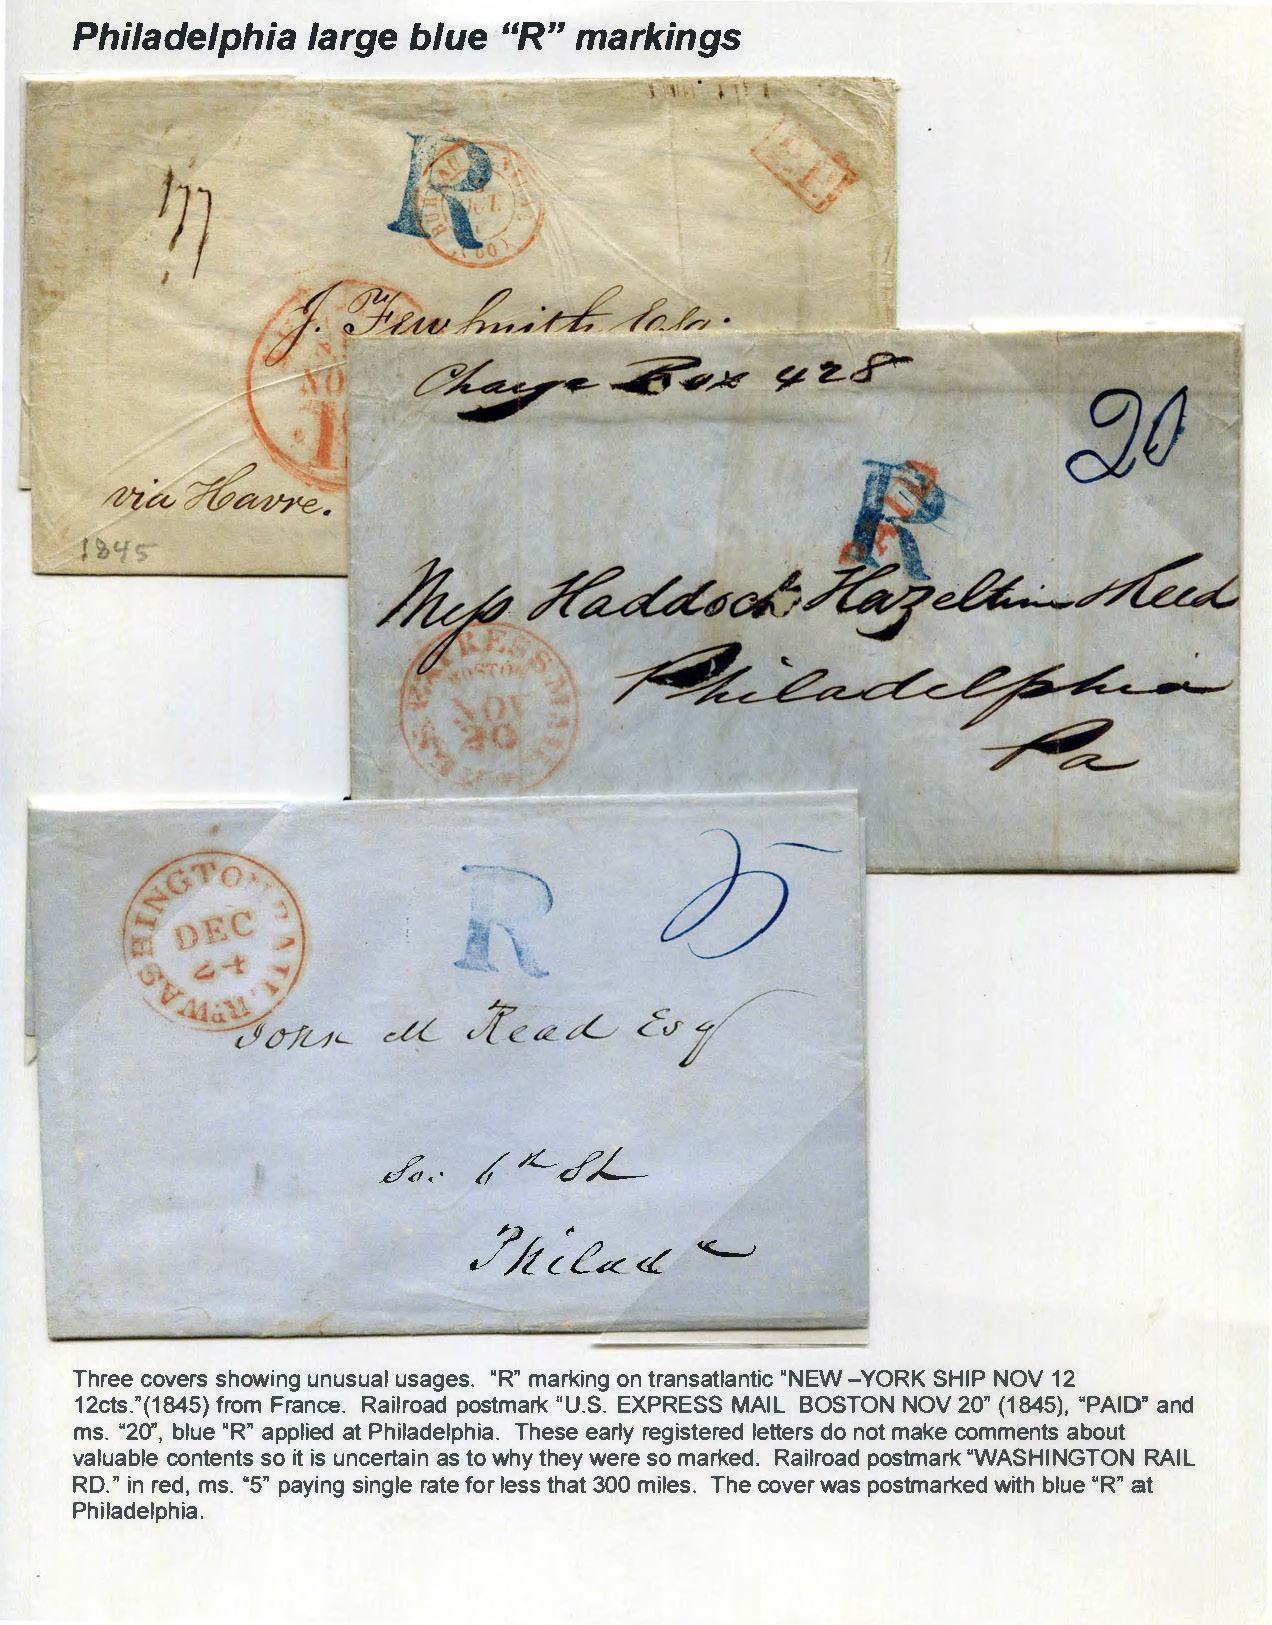 Philadelphia large blue “R” markings
177
R
BUREAU
OCT.
(60)
P.P.
J. Fewsmith Esq.
NO
1
via Havre.
1845
Charge Box 428
20
R
PAID
Mess Haddock Hazeltine & Reed
Philadelphia
Pa
U.S. EXPRESS MAIL
BOSTON
NOV
20
WASHINGTON RAIL RD.
DEC
24
R
5
John M Read Esq
So: 6th St
Philada
Three covers showing unusual usages. “R” marking on transatlantic “NEW –YORK SHIP NOV 12
12cts.”(1845) from France. Railroad postmark “U.S. EXPRESS MAIL BOSTON NOV 20” (1845), “PAID” and
ms. “20”, blue “R” applied at Philadelphia. These early registered letters do not make comments about
valuable contents so it is uncertain as to why they were so marked. Railroad postmark “WASHINGTON RAIL
RD.” in red, ms. “5” paying single rate for less that 300 miles. The cover was postmarked with blue “R” at
Philadelphia.